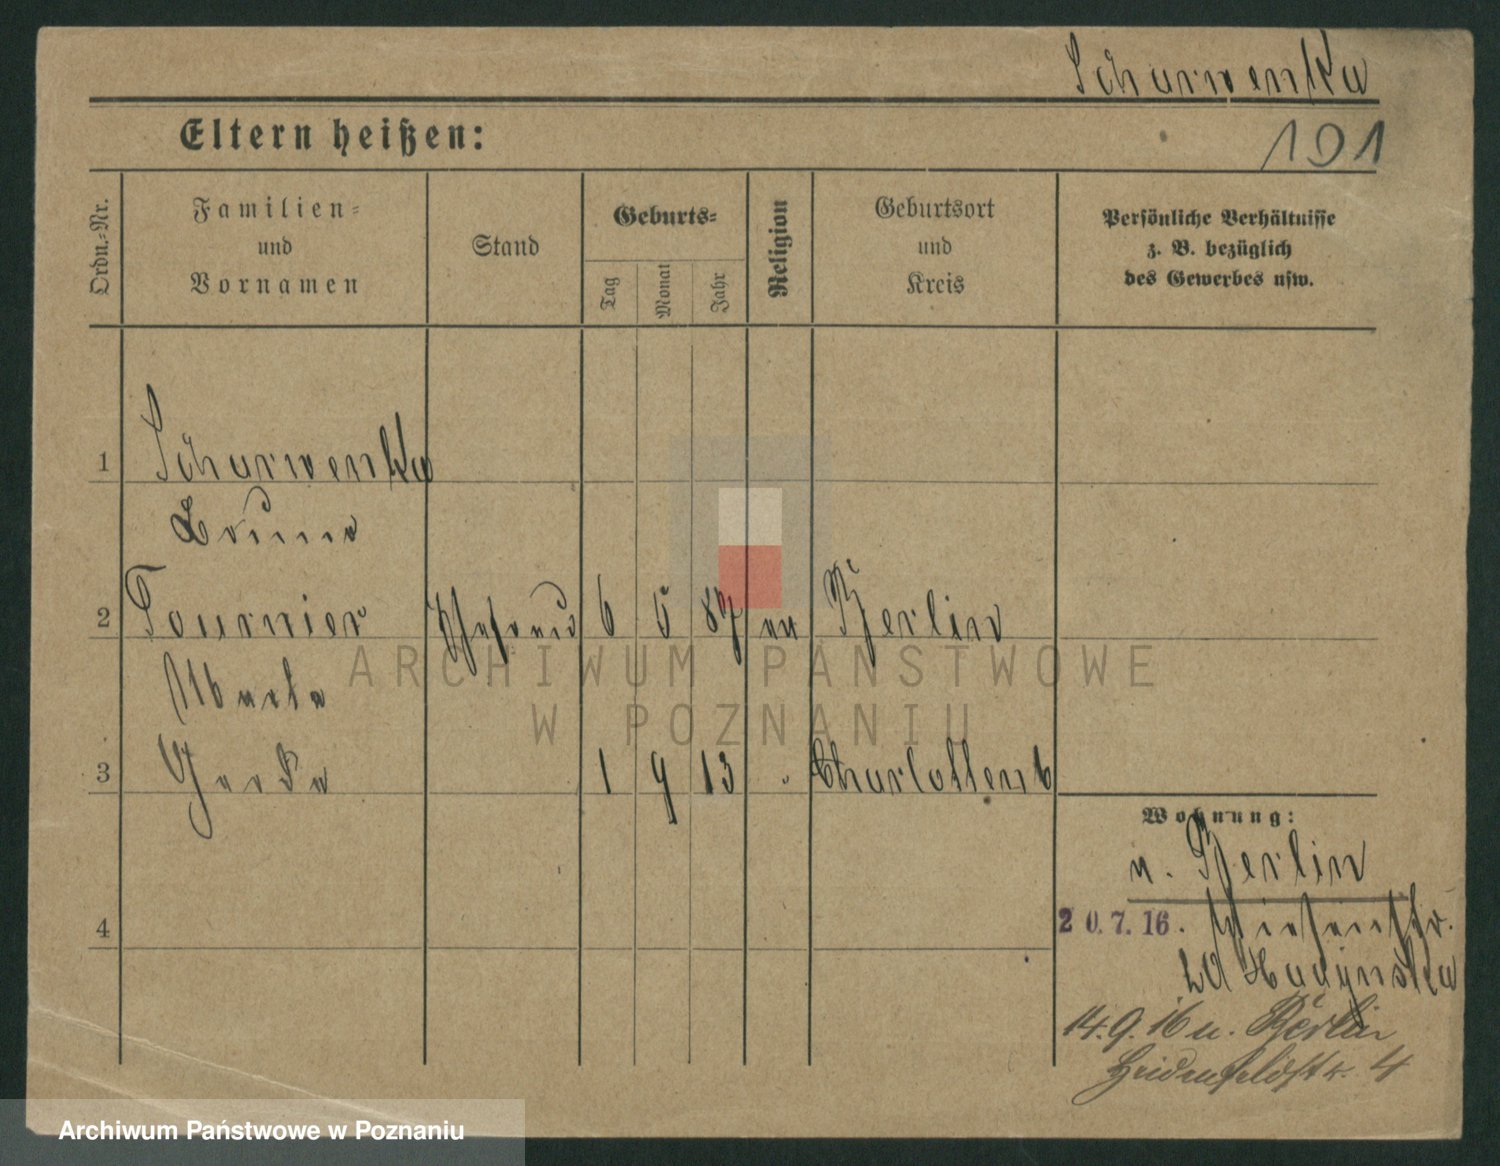 Scharwenka
Eltern heißen:
101
Ordn.-Nr.
Familien-
und
Vornamen
Stand
Geburts-
Tag
Monat
Jahr
Religion
Geburtsort
und
Kreis
Persönliche Verhältnisse
z. B. bezüglich
des Gewerbes usw.
1 Scharwenka
Bruno
2 Tournier Ehefrau 6 5 87 ev Berlin
Marta
3 Gerda 1 9 13 " Charlottenb
4
Wohnung:
n. Berlin
20.7.16. Wiesenstr.
14.9.16 n. Berlin
Heidenfeldstr. 4
ARCHIWUM PAŃSTWOWE
W POZNANIU
Archiwum Państwowe w Poznaniu